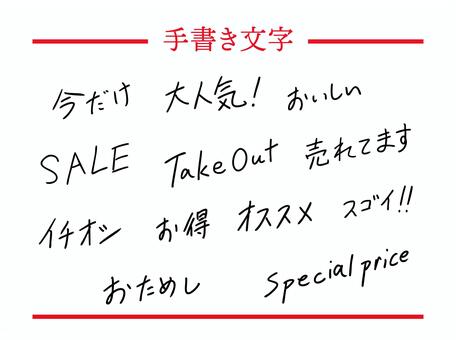 手書き文字
今だけ 大人気! おいしい
SALE Take Out 売れてます
イチオシ お得 オススメ スゴイ!!
おためし Special price